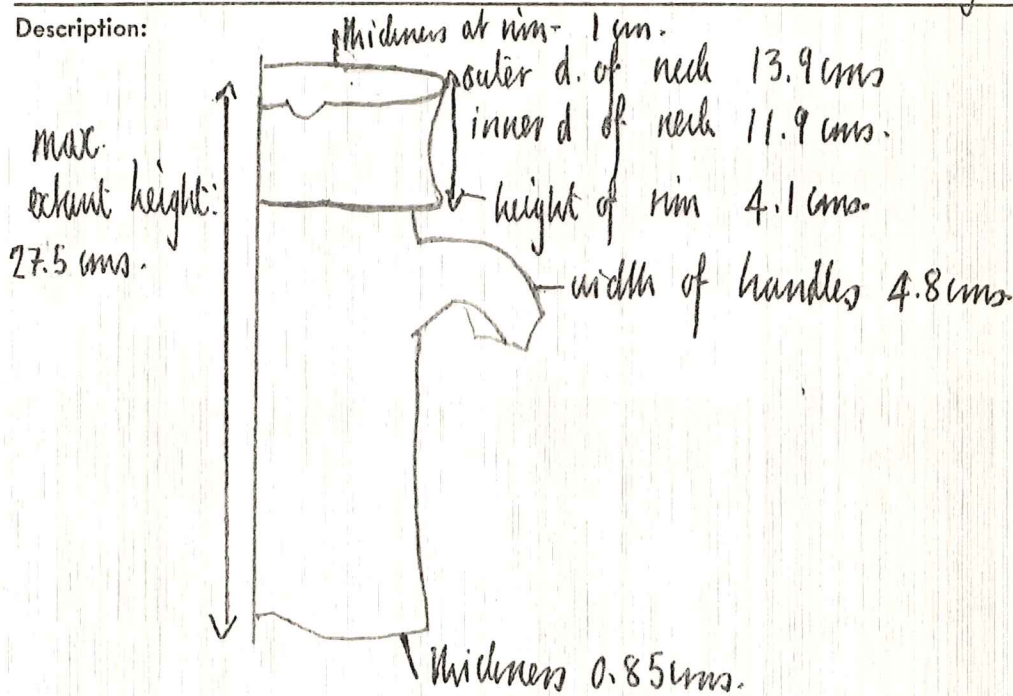 Description:
thickness at rim - 1 cm.
outer d. of neck 13.9 cms
inner d of neck 11.9 cms.
max.
extant height:
27.5 cms.
height of rim 4.1 cms.
width of handles 4.8 cms.
thickness 0.85 cms.